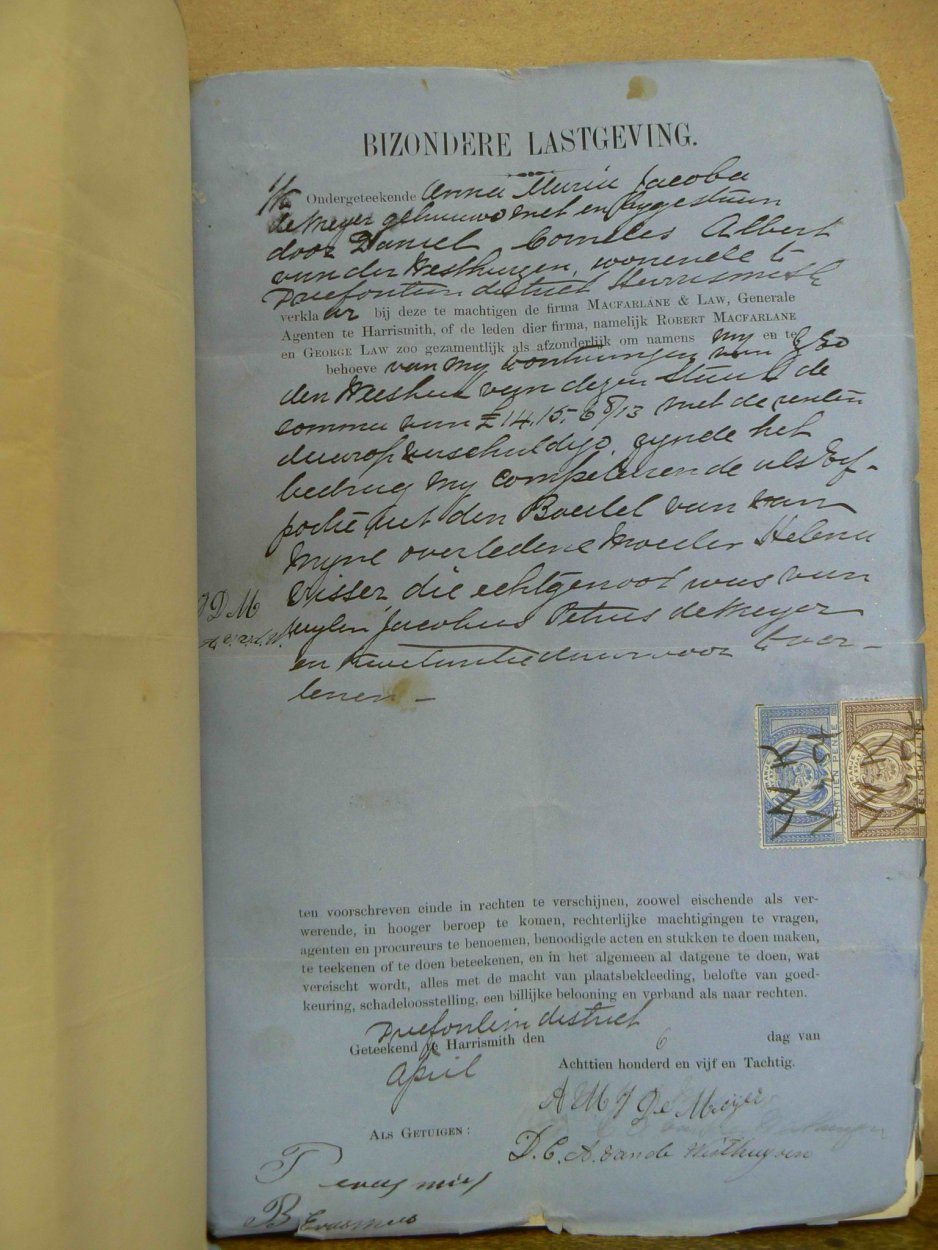 BIZONDERE LASTGEVING.
Ik Ondergeteekende Anna Maria Jacoba
de Meyer gehuuwd met en bygestaan
door Daniel Corneles Albert
van der Westhuizen, wonende te
Driefontein district Harrismith
verklaar bij deze te machtigen de firma MACFARLANE & LAW, Generale
Agenten te Harrismith, of de leden dier firma, namelijk ROBERT MACFARLANE
en GEORGE LAW zoo gezamentlijk als afzonderlijk om namens my en te
behoeve van my
den Weesheer van dezen Staat de
somma van £14,15,6 8/13 met de renten
daarop verschuldigd, zynde het
bedrag my competerende als Erf-
portie uit den Boedel van
Myne overledene Moeder Helena
Visser die echtgenoot was van
wylen Jacobus Petrus de Meyer
en daarvoor te ver-
lenen —
J D M
ACHTTIEN PENCE
EEN SHILLING
ten voorschreven einde in rechten te verschijnen, zoowel eischende als ver-
werende, in hooger beroep te komen, rechterlijke machtigingen te vragen,
agenten en procureurs te benoemen, benoodigde acten en stukken te doen maken,
te teekenen of te doen beteekenen, en in het algemeen al datgene te doen, wat
vereischt wordt, alles met de macht van plaatsbekleeding, belofte van goed-
keuring, schadeloosstelling, een billijke belooning en verband als naar rechten.
Driefontein district
Geteekend te Harrismith den 6 dag van
April Achttien honderd en vijf en Tachtig.
A M J De Meijer
ALS GETUIGEN:
D. C. A. van de Westhuysen
B Erasmus